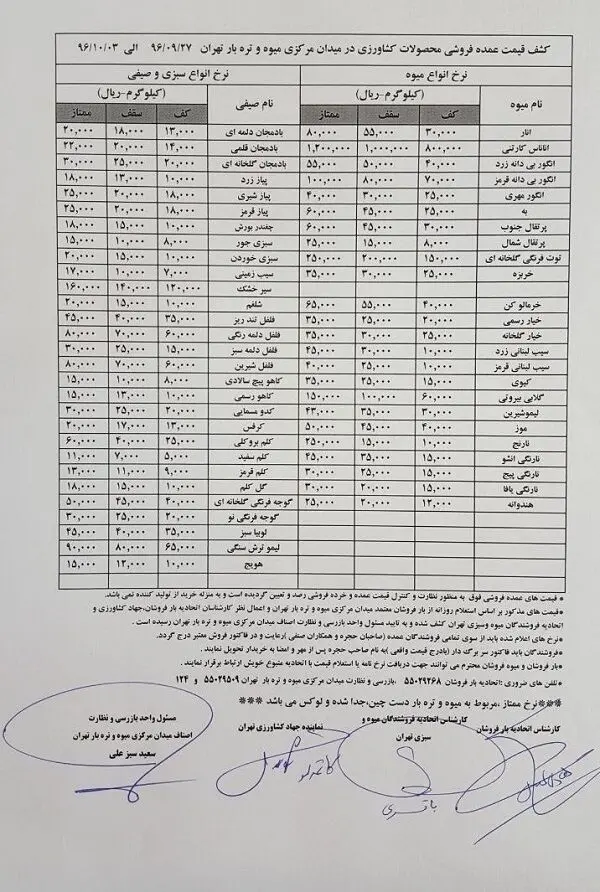 کشف قیمت عمده فروشی محصولات کشاورزی در میدان مرکزی میوه و تره بار تهران ۹۶/۰۹/۲۷ الی ۹۶/۱۰/۰۳
نرخ انواع میوه
نام میوه (کیلوگرم-ریال)
کف سقف ممتاز
انار ۳۰,۰۰۰ ۵۵,۰۰۰ ۸۰,۰۰۰
اناناس کارتنی ۸۰۰,۰۰۰ ۱,۰۰۰,۰۰۰ ۱,۲۰۰,۰۰۰
انگور بی دانه زرد ۴۰,۰۰۰ ۵۰,۰۰۰ ۵۵,۰۰۰
انگور بی دانه قرمز ۷۰,۰۰۰ ۸۰,۰۰۰ ۱۰۰,۰۰۰
انگور مهری ۲۵,۰۰۰ ۳۰,۰۰۰ ۴۰,۰۰۰
به ۲۵,۰۰۰ ۴۵,۰۰۰ ۶۰,۰۰۰
پرتقال جنوب ۳۰,۰۰۰ ۴۵,۰۰۰ ۶۰,۰۰۰
پرتقال شمال ۸,۰۰۰ ۱۵,۰۰۰ ۲۵,۰۰۰
توت فرنگی گلخانه ای ۱۵۰,۰۰۰ ۲۰۰,۰۰۰ ۲۵۰,۰۰۰
خربزه ۲۵,۰۰۰ ۳۰,۰۰۰ ۳۵,۰۰۰
خرمالو کن ۴۰,۰۰۰ ۵۵,۰۰۰ ۶۵,۰۰۰
خیار رسمی ۲۰,۰۰۰ ۲۵,۰۰۰ ۳۵,۰۰۰
خیار گلخانه ۲۵,۰۰۰ ۳۰,۰۰۰ ۳۵,۰۰۰
سیب لبنانی زرد ۱۰,۰۰۰ ۳۰,۰۰۰ ۴۵,۰۰۰
سیب لبنانی قرمز ۱۰,۰۰۰ ۲۵,۰۰۰ ۴۰,۰۰۰
کیوی ۱۵,۰۰۰ ۲۵,۰۰۰ ۳۵,۰۰۰
گلابی بیروتی ۶۰,۰۰۰ ۱۰۰,۰۰۰ ۱۵۰,۰۰۰
لیموشیرین ۳۰,۰۰۰ ۳۵,۰۰۰ ۴۳,۰۰۰
موز ۴۰,۰۰۰ ۴۵,۰۰۰ ۵۰,۰۰۰
نارنج ۱۰,۰۰۰ ۱۵,۰۰۰ ۲۵۰,۰۰۰
نارنگی انشو ۱۵,۰۰۰ ۳۵,۰۰۰ ۴۵,۰۰۰
نارنگی پیج ۱۵,۰۰۰ ۲۵,۰۰۰ ۳۰,۰۰۰
نارنگی یافا ۱۵,۰۰۰ ۲۰,۰۰۰ ۳۰,۰۰۰
هندوانه ۱۲,۰۰۰ ۲۰,۰۰۰ ۲۵,۰۰۰
نرخ انواع سبزی و صیفی
نام صیفی (کیلوگرم-ریال)
کف سقف ممتاز
بادمجان دلمه ای ۱۳,۰۰۰ ۱۸,۰۰۰ ۲۰,۰۰۰
بادمجان قلمی ۱۴,۰۰۰ ۲۰,۰۰۰ ۲۲,۰۰۰
بادمجان گلخانه ای ۲۰,۰۰۰ ۲۵,۰۰۰ ۳۰,۰۰۰
پیاز زرد ۱۰,۰۰۰ ۱۳,۰۰۰ ۱۸,۰۰۰
پیاز شیری ۱۸,۰۰۰ ۲۰,۰۰۰ ۲۵,۰۰۰
پیاز قرمز ۱۸,۰۰۰ ۲۰,۰۰۰ ۲۵,۰۰۰
چغندر بورش ۱۰,۰۰۰ ۱۵,۰۰۰ ۱۸,۰۰۰
سبزی جور ۸,۰۰۰ ۱۰,۰۰۰ ۱۵,۰۰۰
سبزی خوردن ۱۰,۰۰۰ ۱۵,۰۰۰ ۲۰,۰۰۰
سیب زمینی ۷,۰۰۰ ۱۰,۰۰۰ ۱۷,۰۰۰
سیر خشک ۱۲۰,۰۰۰ ۱۴۰,۰۰۰ ۱۶۰,۰۰۰
شلغم ۱۰,۰۰۰ ۱۵,۰۰۰ ۲۰,۰۰۰
فلفل تند ریز ۳۵,۰۰۰ ۴۰,۰۰۰ ۴۵,۰۰۰
فلفل دلمه رنگی ۶۰,۰۰۰ ۷۰,۰۰۰ ۸۰,۰۰۰
فلفل دلمه سبز ۱۵,۰۰۰ ۲۵,۰۰۰ ۳۰,۰۰۰
فلفل شیرین ۶۰,۰۰۰ ۷۰,۰۰۰ ۸۰,۰۰۰
کاهو پیچ سالادی ۸,۰۰۰ ۱۰,۰۰۰ ۱۵,۰۰۰
کاهو رسمی ۱۰,۰۰۰ ۱۳,۰۰۰ ۱۵,۰۰۰
کدو مسمایی ۲۰,۰۰۰ ۲۵,۰۰۰ ۳۰,۰۰۰
کرفس ۱۳,۰۰۰ ۱۷,۰۰۰ ۲۰,۰۰۰
کلم بروکلی ۲۵,۰۰۰ ۴۰,۰۰۰ ۶۰,۰۰۰
کلم سفید ۵,۰۰۰ ۷,۰۰۰ ۱۱,۰۰۰
کلم قرمز ۹,۰۰۰ ۱۱,۰۰۰ ۱۳,۰۰۰
گل کلم ۱۰,۰۰۰ ۱۵,۰۰۰ ۱۸,۰۰۰
گوجه فرنگی گلخانه ای ۴۰,۰۰۰ ۴۵,۰۰۰ ۵۰,۰۰۰
گوجه فرنگی نو ۲۰,۰۰۰ ۲۵,۰۰۰ ۳۰,۰۰۰
لوبیا سبز ۳۵,۰۰۰ ۴۰,۰۰۰ ۴۵,۰۰۰
لیمو ترش سنگی ۶۵,۰۰۰ ۸۰,۰۰۰ ۹۰,۰۰۰
هویج ۱۰,۰۰۰ ۱۲,۰۰۰ ۱۵,۰۰۰
* قیمت های عمده فروشی فوق به منظور نظارت و کنترل قیمت عمده و خرده فروشی رصد و تعیین گردیده است و به منزله خرید از تولید کننده نمی باشد.
*قیمت های مذکور بر اساس استعلام روزانه از بار فروشان معتمد میدان مرکزی میوه و تره بار تهران و اعمال نظر کارشناسان اتحادیه بار فروشان،جهاد کشاورزی و
اتحادیه فروشندگان میوه وسبزی تهران کشف شده و به تایید مسئول واحد بازرسی و نظارت اصناف میدان مرکزی میوه و تره بار تهران رسیده است .
*نرخ های اعلام شده باید از سوی تمامی فروشندگان عمده (صاحبان حجره و همکاران صنفی )رعایت و در فاکتور فروش معتبر درج گردد.
*فروشندگان باید فاکتور سر برگ دار (بادرج قیمت واقعی )به نام صاحب حجره پس از مهر و امضا به خریدار تحویل نمایند .
*بار فروشان و میوه فروشان محترم می توانند جهت دریافت نرخ نامه یا استعلام قیمت با اتحادیه متبوع خویش ارتباط برقرار نمایند .
*تلفن های ضروری :اتحادیه بار فروشان ۵۵۰۲۹۲۶۸ ،بازرسی و نظارت میدان مرکزی میوه و تره بار تهران ۵۵۰۲۹۵۰۹ و ۱۲۴
***نرخ ممتاز، مربوط به میوه و تره بار دست چین،جدا شده و لوکس می باشد ***
کارشناس اتحادیه بار فروشان
کارشناس اتحادیه فروشندگان میوه و
سبزی تهران
نماینده جهاد کشاورزی تهران
مسئول واحد بازرسی و نظارت
اصناف میدان مرکزی میوه و تره بار تهران
سعید سبز علی
باقری